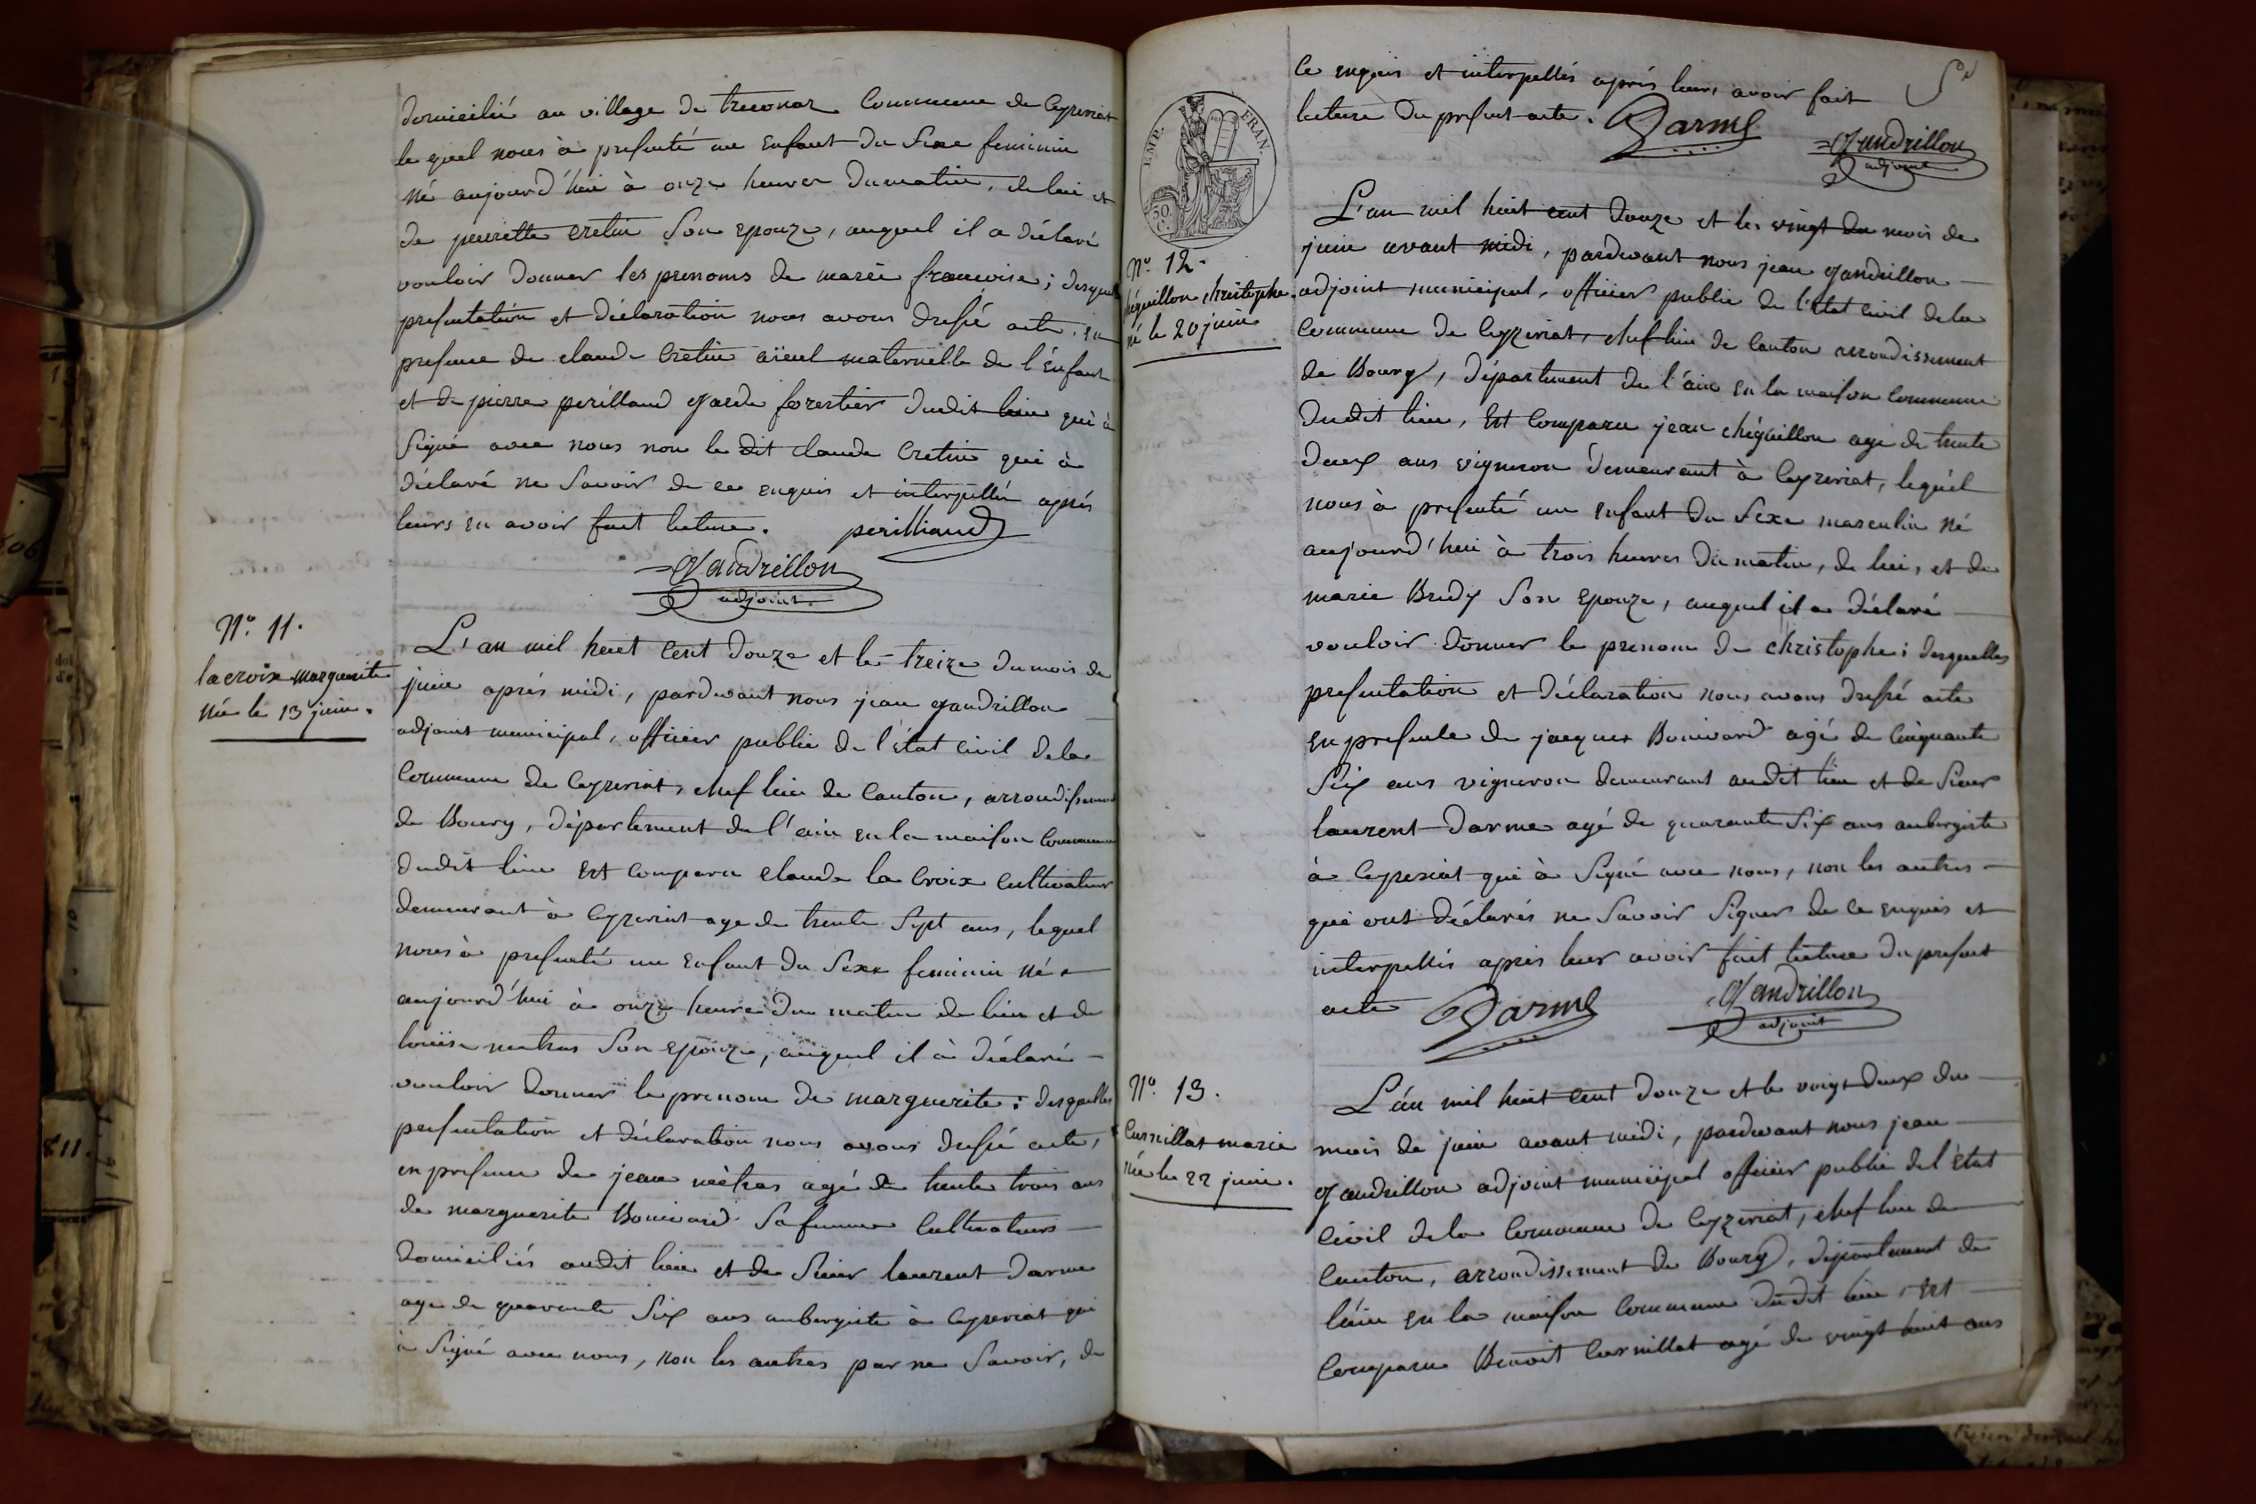 domicilié au village de treconar Commune de Ceyzeriat
le quel nous à presenté un Enfant du Sexe feminin
Né aujourd'hui à onze heures du matin, de lui et
de pierrette Cretin Son Epouze, auquel il a déclaré
vouloir donner les prenoms de marie francoise ; desquel
presentation et déclaration nous avons dressé acte, En
presence de claude Cretin aïeul maternelle de l'Enfant
et de pierre perilland garde forestier dudit lieu qui à
Signé avec nous non le dit claude Cretin qui à
déclaré ne Savoir de ce enquis et interpellé aprés
leurs En avoir fait lecture. perilliand
=Gandrillon
adjoint.
N.o 11.
lacroix marguerite
Née le 13 juin.
L'an mil huit Cent Douze et le treize du mois de
juin aprés midi, pardevant nous jean gandrillon
adjoint municipal, officier public de l'état Civil de la
Commune de Ceyzeriat, chef lieu de Canton, arrondissement
de Bourg, département de l'ain en la maison Commune
dudit lieu Est Comparu claude la Croix Cultivateur
demeurant à Ceyzeriat age de trente Sept ans, lequel
nous à presenté un Enfant du Sexe feminin Né
aujourd'hui à onze heure du matin de lui et de
louise metras Son Epouze, auquel il à déclaré
vouloir donner le prenom de marguerite : desquelles
presentation et déclaration nous avons dressé acte,
en presence de jean mêtras agé de trente trois ans
de marguerite Bouivard Sa femme Cultivateurs
Domiciliés audit lieu et de Sieur laurent Darme
age de quarante Six ans aubergiste à Ceyzeriat qui
à Signé avec nous, non les autres par ne Savoir, de
ce enquis et interpellés aprés leurs avoir fait
lecture du present acte. Darme =Gandrillon
adjoint
EMP. FRAN.
50
C.
N.o 12.
chéguillon christophe
né le 20 juin
L'an mil huit cent Douze et les vingt du mois de
juin avant midi, pardevant nous jean gandrillon
adjoint municipal, officier public de l'Etat Civil de la
Commune de Ceyzeriat, chef lieu de Canton arrondissement
de Bourg, département de l'ain en la maison Commune
dudit lieu, Est Comparu jean chéguillon age de trente
deux ans vigneron demeurant à Ceyzeriat, lequel
nous à presenté un Enfant du Sexe masculin Né
aujourd'hui à trois heures du matin, de lui, et de
marie Brudy Son Epouze, auquel il a déclaré
vouloir donner le prenom de christophe ; desquelles
presentation et déclaration nous avons dressé acte
en presence de jacques Bouivard agé de Cinquante
Six ans vigneron demeurant audit lieu et de Sieur
laurent Darme agé de quarante Six ans aubergiste
à Ceyzeriat qui à Signé avec nous, non les autres
qui ont déclarés ne Savoir Signer de ce enquis et
interpellés aprés leur avoir fait lecture du present
acte Darme Gandrillon
adjoint
N.o 13.
Curnillat marie
née le 22 juin.
L'án mil huit cent Douze et le vingt deux du
mois de juin avant midi, pardevant nous jean
gandrillon adjoint municipal officier public de l'état
Civil de la Commune de Ceyzeriat, chef lieu de
Canton, arrondissement de Bourg, département de
l'ain en la maison Commune dudit lieu, Est
Comparu Benoit Curnillat agé de vingt huit ans